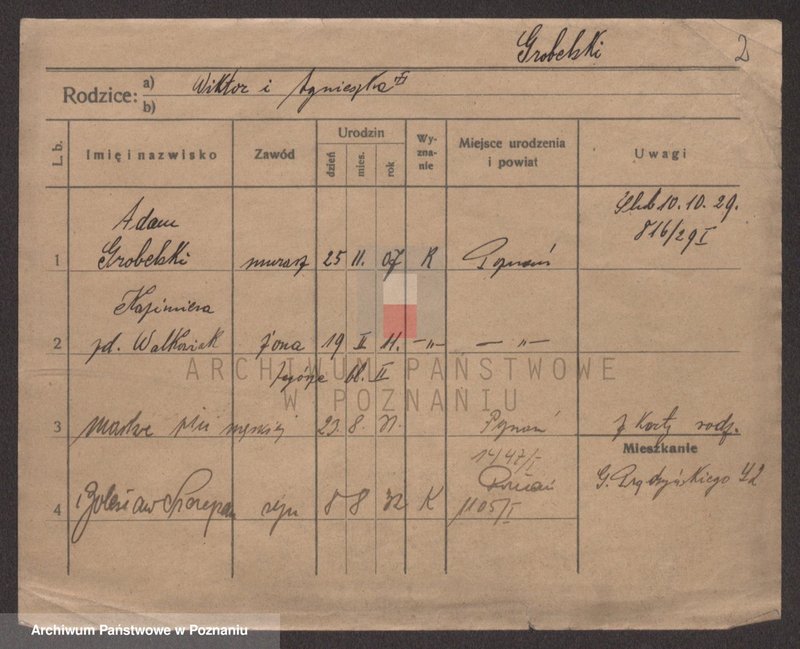 Grobelski 2
Rodzice: a) Wiktor i Agnieszka
b)
L. b.
Imię i nazwisko
Zawód
Urodzin
dzień
mies.
rok
Wy-
zna-
nie
Miejsce urodzenia
i powiat
Uwagi
Adam
1 Grobelski murarz 25 11. 07 K Poznań
Ślub 10. 10. 29.
816/29 I
Kazimiera
2 zd. Walkowiak żona 19 II 11. —„— —„—
bl. II
3 martwe płci męskiej 23. 8. 31. Poznań z Karty rodz.
Mieszkanie
1447/I
G. Prądzyńskiego 42
4 Bolesław Szczepan syn 8 8 32 K Poznań
1105/I
ARCHIWUM PAŃSTWOWE
W POZNANIU
Archiwum Państwowe w Poznaniu